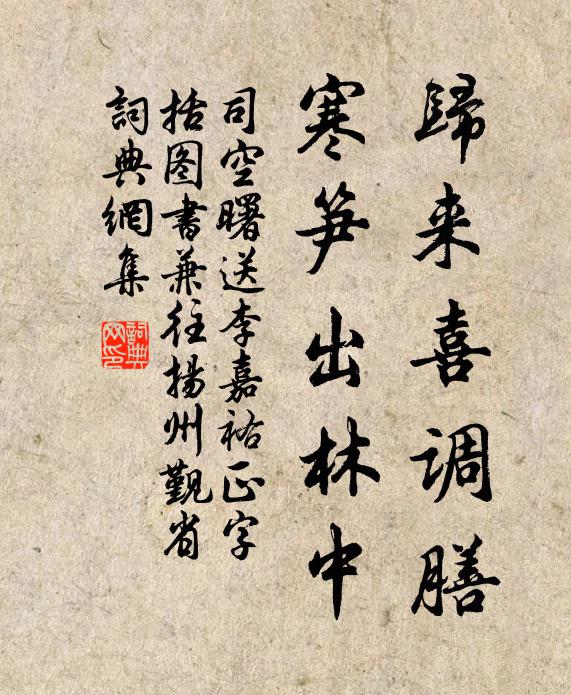 歸来喜调膳
寒笋出林中
司空曙送李嘉祐正字
括图書兼往揚州覲省
詞典網集
詞典网印